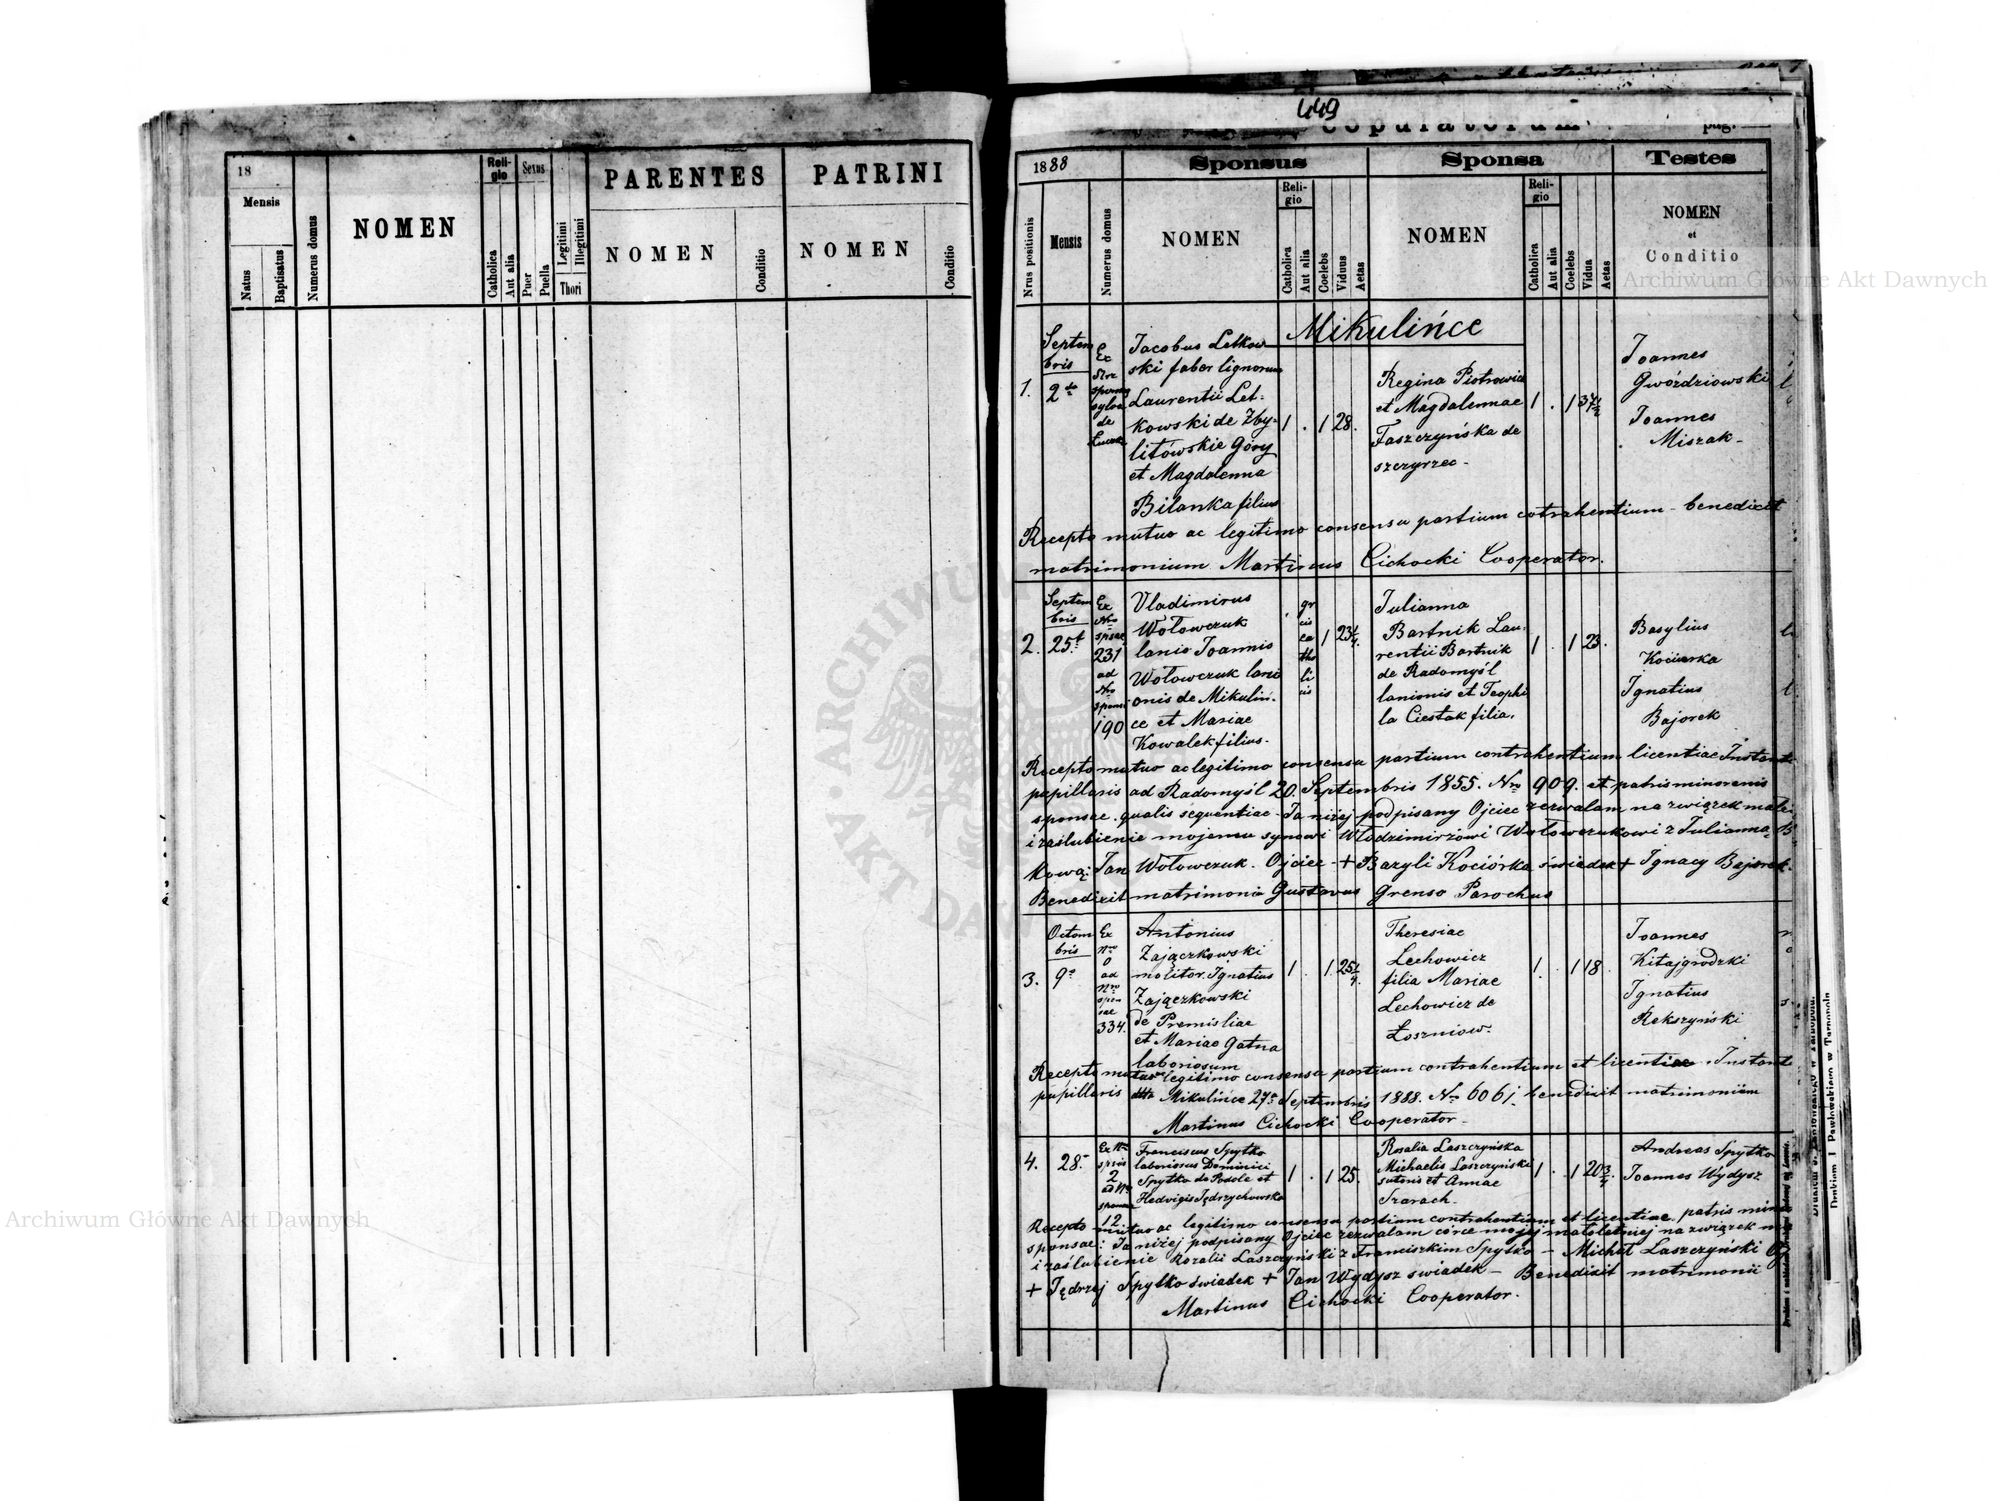 18
Mensis
Natus
Baptisatus
Numerus domus
NOMEN
Reli-
gio
Catholica
Aut alia
Sexus
Puer
Puella
Legitimi
Illegitimi
Thori
PARENTES
NOMEN
Conditio
PATRINI
NOMEN
Conditio
449
Copulatorum
pag.
1888
Sponsus
Sponsa
Testes
Nrus positionis
Mensis
Numerus domus
NOMEN
Reli-
gio
Catholica
Aut alia
Coelebs
Viduus
Aetas
NOMEN
Reli-
gio
Catholica
Aut alia
Coelebs
Vidua
Aetas
NOMEN
et
Conditio
Archiwum Główne Akt Dawnych
Mikulińce
1.
Septem
bris
2da
Ex
Nro
sponsae
sylva
de
Jacobus Letkow
ski faber lignorum
Laurentii Let-
kowski de Zby-
litówskie Góry
et Magdalenna
Bilanka filius
1 . 1 28.
Regina Piotrowicz
et Magdalennae
Taszczyńska de
szczyrzec -
1 . 1
Joannes
Gwóździowski
Joannes
Miszak -
Recepto mutuo ac legitimo consensu partium cotrahentium - benedixit
matrimonium Martinus Cichocki Cooperator.
2.
Septem
bris
25t
Ex
Nro
spsae
231
ad
Nro
sponsi
190
Vladimirus
Wołowczuk
lanio Joannis
Wołowczuk lani
onis de Mikuliń-
ce et Mariae
Kowalek filius -
gr
cis
ca
tho
li
cis
1 23 1/4
Julianna
Bartnik Lau-
rentii Bartnik
de Radomyśl
lanionis et Teophi
la Cieślak filia.
1 . 1 23.
Basylius
Kociurka
Ignatius
Bajorek
Recepto mutuo ac legitimo consensu partium contrahentium licentiae Instant
pupillaris ad Radomyśl 20. Septembris 1855. Nro 909. et patris minorenis
sponsae. qualis sequentiae - Ja niżej podpisany Ojciec zezwalam na związek małż
i zaślubienie mojemu synowi Włodzimirżowi Wołowczukowi z Julianną B
kową: Jan Wołowczuk. Ojciec - + Bazyli Kociórka świadek + Ignacy Bajorek.
Benedixit matrimonio Gustavus Grenso Parochus
3.
Octom
bris
9a
Ex
Nro
0
ad
Nro
spon
sae
334.
Antonius
Zajączkowski
molitor. Ignatius
Zajączkowski
de Premisliae
et Mariae Gatna
laboriosum
1 . 1 25 1/4
Theresiae
Lechowicz
filia Mariae
Lechowicz de
Łoszniow.
1 . 1 18.
Joannes
Kitajgrodzki
Ignatius
Rekszyński
Recepto mutuo ac legitimo consensu partium contrahentium et licentiae. Instant
pupillaris dtto Mikulińce 27a Septembris 1888. Nro 6061. benedixit matrimonium
Martinus Cichocki Cooperator -
4.
28.
Ex Nro
spsis
2
ad Nro
sponsae
12
Franciscus Spytko
laboriosus Dominici
Spytko de Podole et
Hedvigis Jędrzychowska
1 . 1 25.
Rosalia Laszczyńska
Michaelis Laszczyński
sutoris et Annae
Szarach.
1 . 1 20 3/4
Andreas Spytko
Joannes Wydysz
Recepto mutuo ac legitimo consensu partium contrahentium et licentiae, patris mino
sponsae: Ja niżej podpisany Ojciec zezwalam córce mojej małoletniej na związek m
i zaślubienie Rozalii Laszczyński z Franciszkim Spytko - Michał Laszczyński Oj
+ Jędrzej Spytko świadek + Jan Wydysz świadek - Benedixit matrimonii
Martinus Cichocki Cooperator.
Drukiem J. Pawłowskiego w Tarnopolu.
ARCHIWUM
AKT DAW
Archiwum Główne Akt Dawnych